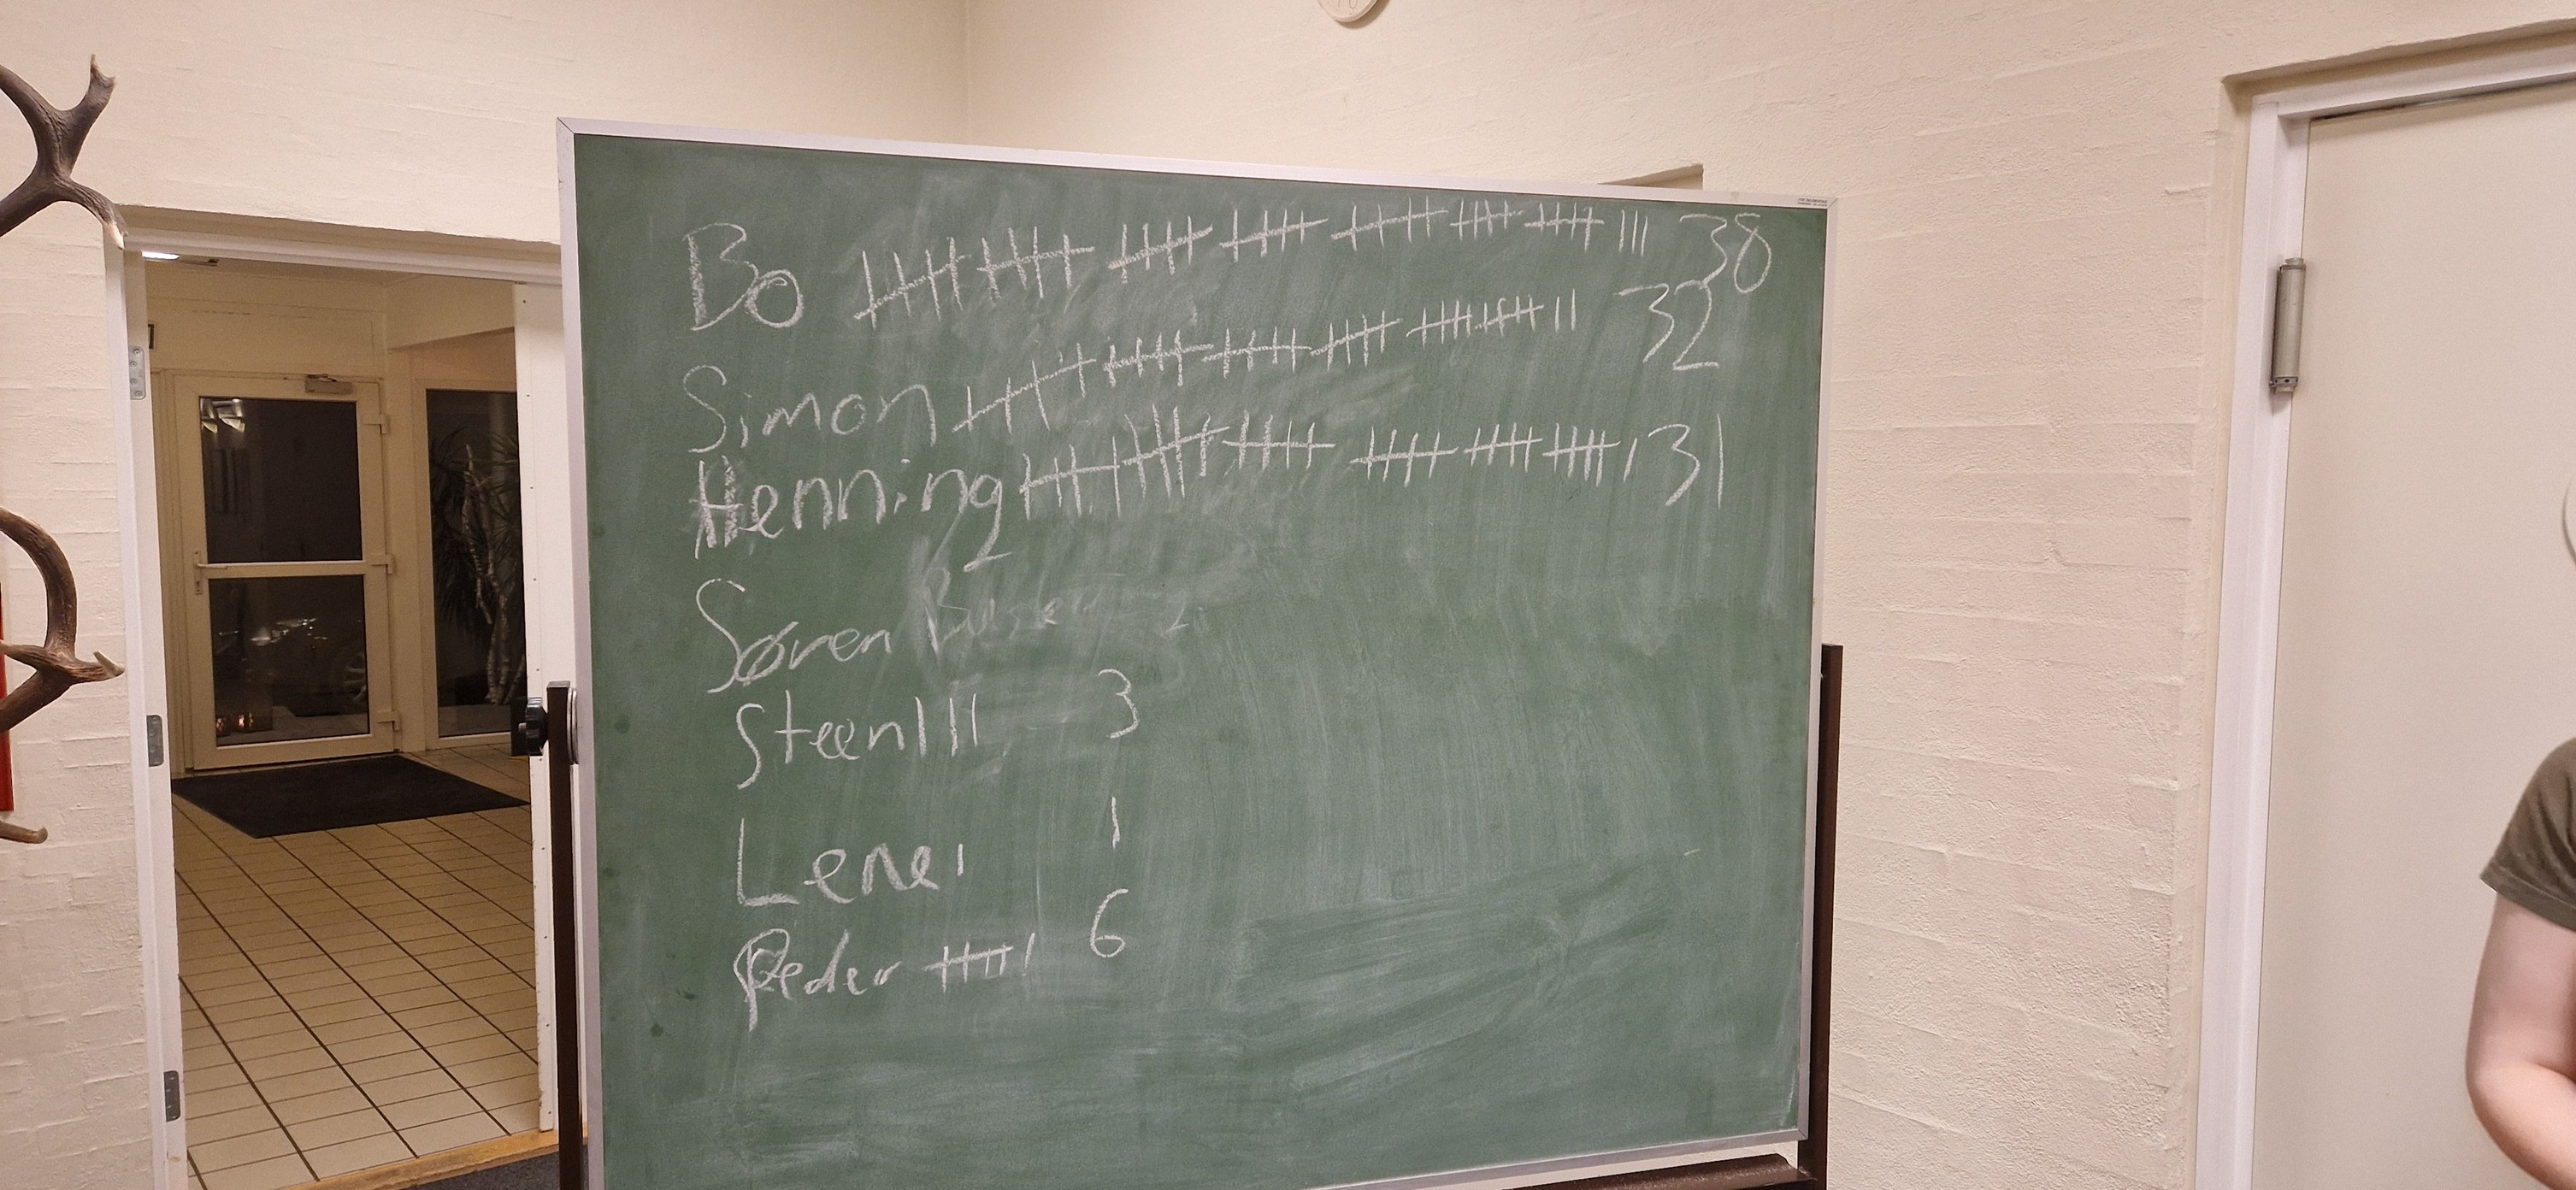 Bo 38
Simon 32
Henning 31
2
Søren
Steen III 3
Lene I 1
Peder 6